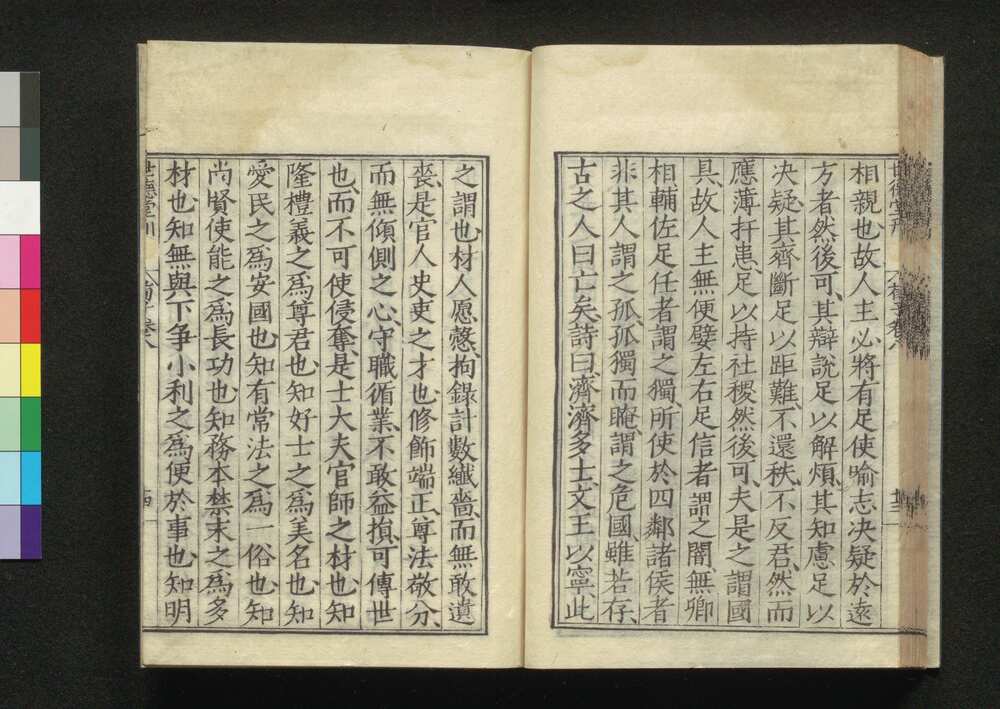 相親也故人主必將有足使喻志決疑於遠
方者然後可其辯說足以解煩其知慮足以
決疑其齊斷足以距難不還秩不反君然而
應薄扞患足以持社稷然後可夫是之謂國
具故人主無便嬖左右足信者謂之闇無卿
相輔佐足任者謂之獨所使於四鄰諸侯者
非其人謂之孤孤獨而晻謂之危國雖若存
古之人曰亡矣詩曰濟濟多士文王以寧此
之謂也材人愿愨拘錄計數纖嗇而無敢遺
喪是官人史吏之才也修飾端正尊法敬分
而無傾側之心守職循業不敢益損可傳世
也而不可使侵奪是士大夫官師之材也知
隆禮義之為尊君也知好士之為美名也知
愛民之為安國也知有常法之為一俗也知
尚賢使能之為長功也知務本禁末之為多
材也知無與下爭小利之為便於事也知明
世德堂刊